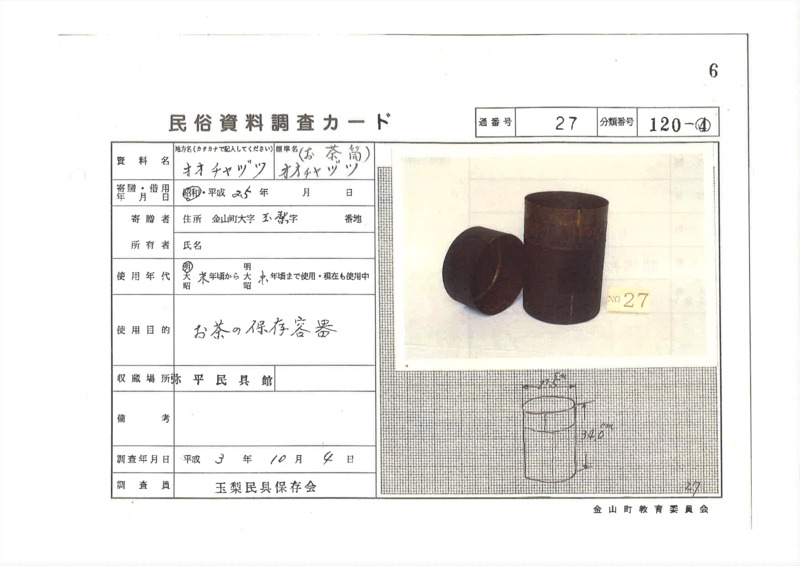 6
民俗資料調査カード
通番号 27 分類番号 120-④
資料名 地方名(カタカナで記入してください) オオチャヅツ 標準名(お茶筒) オオチャヅツ
寄贈・借用年月日 昭和・平成 25年 月 日
寄贈者 住所 金山町大字 玉梨 字 番地
所有者 氏名
使用年代 明大昭 末年頃から 明大昭 末年頃まで使用・現在も使用中
使用目的 お茶の保存容器
収蔵場所 弥平民具館
備考
調査年月日 平成 3年 10月 4日
調査員 玉梨民具保存会
NO 27
27.5cm
34.0cm
27
金山町教育委員会